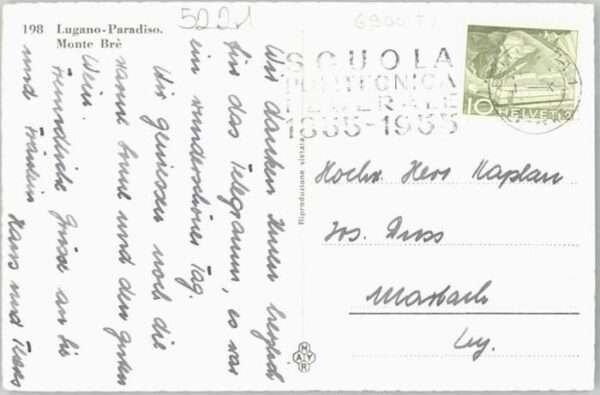 198 Lugano-Paradiso.
Monte Brè
5001
6900 TI
SCUOLA
POLITECNICA
FEDERALE
1855-1955
10
HELVETIA
Wir danken Ihnen herzlich
für das Telegramm, es war
ein wunderschöner Tag.
Wir geniessen noch die
Sonne und den guten
Wein.
Freundliche Grüsse an Sie
und Fräulein
Hans und
Riproduzione vietata
MAYR
Hochw. Herr Kaplan
Jos.
Marbach